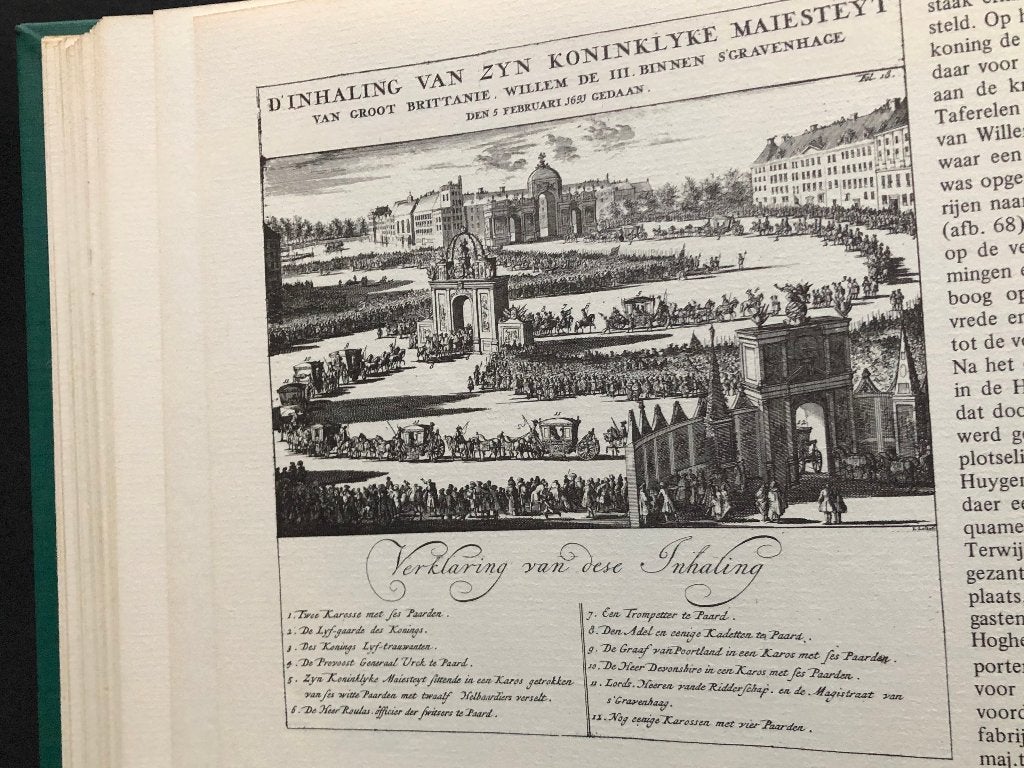 D'INHALING VAN ZYN KONINKLYKE MAIESTEYT
VAN GROOT BRITTANIE, WILLEM DE III. BINNEN S'GRAVENHAGE
DEN 5 FEBRUARI 1691 GEDAAN.
Fol. 18.
Verklaring van dese Inhaling
1. Twee Karosse met ses Paarden.
2. De Lyf-gaarde des Konings.
3. Des Konings Lyf-trauwanten.
4. De Provoost Generaal Urck te Paard.
5. Zyn Koninklyke Maiesteyt sittende in een Karos getrokken
van ses witte Paarden met twaalf Helbaardiers verselt.
6. De Heer Roulas. officier der switsers te Paard.
7. Een Trompetter te Paard.
8. Den Adel en eenige Kadetten te Paard.
9. De Graaf van Poortland in een Karos met ses Paarden.
10. De Heer Devonshire in een Karos met ses Paarden.
11. Lords, Heeren vande Ridderschap, en de Magistraat van
s'Gravenhaag.
12. Nog eenige Karossen met vier Paarden.
staak
steld. Op
koning de
daar voor
aan de
Taferelen
van Wille
waar een
was opge
rijen naar
(afb. 68)
op de ve
mingen
boog op
vrede en
tot de ve
Na het
in de H
dat doo
werd ge
plotseli
Huygen
daer ee
quame
Terwij
gezant
plaats.
gasten
Hoghe
porte
voor
voord
fabrij
maj.t